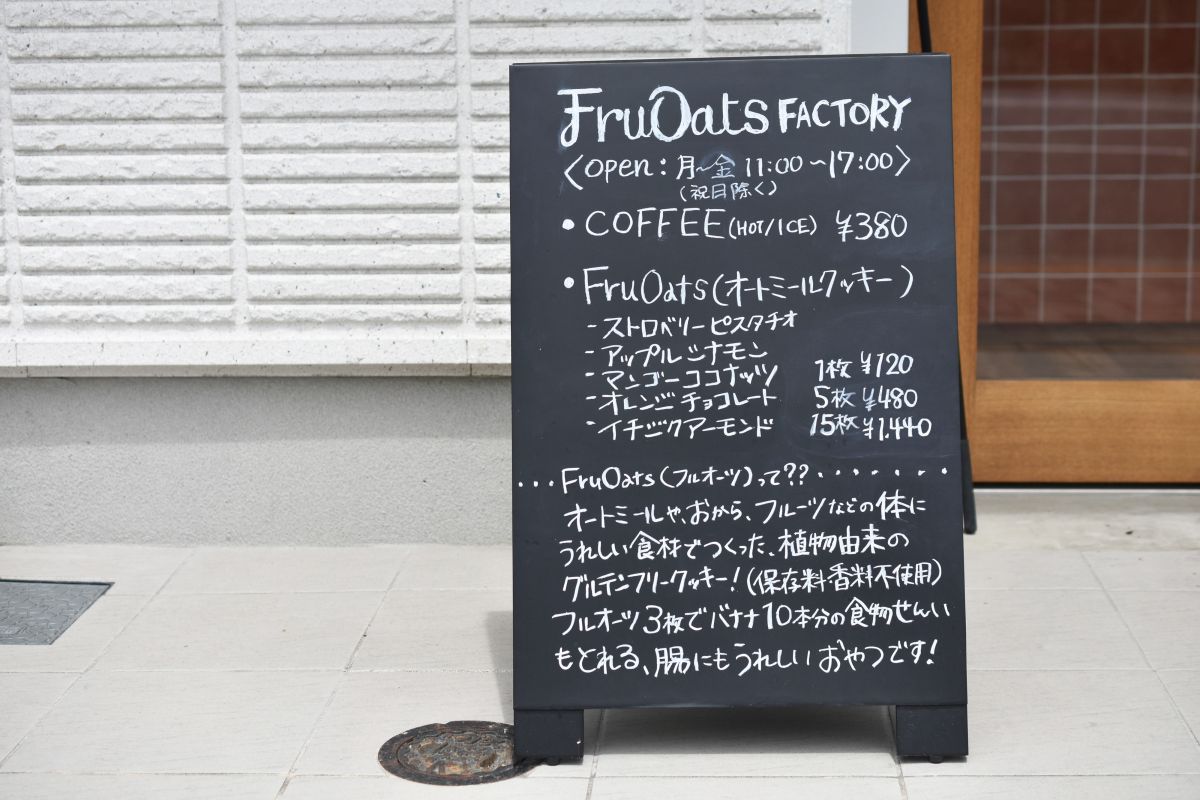 FruOats FACTORY
〈open：月〜金 11:00〜17:00〉
(祝日除く)
・COFFEE(HOT/ICE) ¥380
・FruOats(オートミールクッキー)
-ストロベリーピスタチオ
-アップルシナモン
-マンゴーココナッツ 1枚 ¥120
-オレンジチョコレート 5枚 ¥480
-イチジクアーモンド 15枚 ¥1.440
...FruOats(フルオーツ)って??.......
オートミールや、おから、フルーツなどの体に
うれしい食材でつくった、植物由来の
グルテンフリークッキー!(保存料香料不使用)
フルオーツ3枚でバナナ10本分の食物せんい
もとれる、腸にもうれしいおやつです!